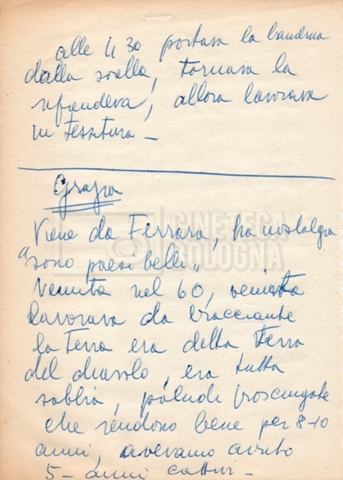 alle 4 30 portava la bambina
dalla sorella, tornava la
riprendeva, allora lavorava
in tessitura -
Grazia
Viene da Ferrara, ha nostalgia
"sono paesi belli"
Venuta nel 60, venuta
lavorava da bracciante
la terra era detta terra
del diavolo, era tutta
sabbia, paludi prosciugate
che rendono bene per 8-10
anni, avevamo avuto
5 - anni cattivi -
CINETECA
BOLOGNA